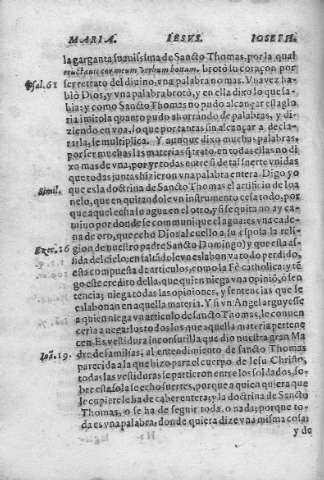 MARIA. IESVS. IOSEPH.
la garganta suauissima de Sancto Thomas, por la qual
eructauit cor meum Verbum bonum, brotò su coraçon por
Psal. 61 ser retrato del diuino, vna palabra no mas. Vna vez ha-
blò Dios, y vna palabra brotò, y en ella dixo lo que sa-
bia: y como Sancto Thomas no pudo alcançar esta glo
ria imitola quanto pudo ahorrando de palabras, y di-
ziendo en vna, lo que por tantas sin alcançar a decla-
rarla, se multiplica. Y aunque dixo muchas palabras,
por ser muchas las materias q̃ trato, en todas ellas no di
xo mas de vna, porque todas entre si de tal suerte vnidas
que todas juntas hizieron vna palabra entera. Digo yo
Simil. que es la doctrina de Sancto Thomas el artificio de Ioa
nelo, que en quitandole vn instrumento cesa todo, por
que aquel echa lo agua en el otro, y si se quita no ay ca-
mino por donde se communique el agua: es vna cade-
na de oro, que echo Dios al cuello a su esposa la reli-
Exec. 16 gion de nuestro padre Sancto Domingo) y que esta as-
sida del cielo; en faltandole vn eslabon va todo perdido,
esta compuesta de articulos, como la Fè catholica: y tẽ
go este credito della, que quien niega vna opiniõ, ò sen
tencia; niega todas las opiniones, y sentencias que se
eslabonan en aquella materia. Y si vn Angel arguyesse
a quien niega vn articulo de sancto Thomas, le conuen
ceria a negar los todos los que aquella materia pertene
cen. Es vestidura inconsutil la que dio nuestra gran Ma
Ioã. 19. dre de familias, al entendimiento de sancto Thomas
parecida a la que hizo para el cuerpo de Iesu Christo,
todas las vestiduras se partieron entre los soldados, so-
bre esta sola se echo suertes, porque a quien quiera que
le cupiere le ha de caber entera; y la doctrina de Sancto
Thomas, o se ha de seguir toda. o nada; porque to-
da es vna palabra, donde quiera dize vna misma cosa;
y do